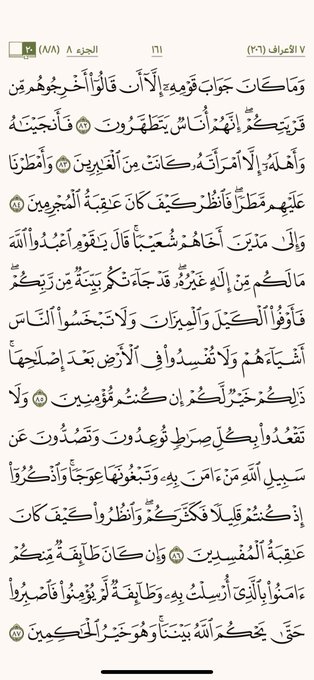 ٧ الأعراف (٢٠٦) ١٦١ الجزء ٨ (٨/٨) ٢٠
وَمَا كَانَ جَوَابَ قَوْمِهِۦٓ إِلَّآ أَن قَالُوٓا۟ أَخْرِجُوهُم مِّن
قَرْيَتِكُمْ ۖ إِنَّهُمْ أُنَاسٌ يَتَطَهَّرُونَ ٨٢ فَأَنجَيْنَٰهُ
وَأَهْلَهُۥٓ إِلَّا ٱمْرَأَتَهُۥ كَانَتْ مِنَ ٱلْغَٰبِرِينَ ٨٣ وَأَمْطَرْنَا
عَلَيْهِم مَّطَرًا ۖ فَٱنظُرْ كَيْفَ كَانَ عَٰقِبَةُ ٱلْمُجْرِمِينَ ٨٤
وَإِلَىٰ مَدْيَنَ أَخَاهُمْ شُعَيْبًا ۗ قَالَ يَٰقَوْمِ ٱعْبُدُوا۟ ٱللَّهَ
مَا لَكُم مِّنْ إِلَٰهٍ غَيْرُهُۥ ۖ قَدْ جَآءَتْكُم بَيِّنَةٌ مِّن رَّبِّكُمْ ۖ
فَأَوْفُوا۟ ٱلْكَيْلَ وَٱلْمِيزَانَ وَلَا تَبْخَسُوا۟ ٱلنَّاسَ
أَشْيَآءَهُمْ وَلَا تُفْسِدُوا۟ فِى ٱلْأَرْضِ بَعْدَ إِصْلَٰحِهَا ۚ
ذَٰلِكُمْ خَيْرٌ لَّكُمْ إِن كُنتُم مُّؤْمِنِينَ ٨٥ وَلَا
تَقْعُدُوا۟ بِكُلِّ صِرَٰطٍ تُوعِدُونَ وَتَصُدُّونَ عَن
سَبِيلِ ٱللَّهِ مَنْ ءَامَنَ بِهِۦ وَتَبْغُونَهَا عِوَجًا ۚ وَٱذْكُرُوٓا۟
إِذْ كُنتُمْ قَلِيلًا فَكَثَّرَكُمْ ۖ وَٱنظُرُوا۟ كَيْفَ كَانَ
عَٰقِبَةُ ٱلْمُفْسِدِينَ ٨٦ وَإِن كَانَ طَآئِفَةٌ مِّنكُمْ
ءَامَنُوا۟ بِٱلَّذِىٓ أُرْسِلْتُ بِهِۦ وَطَآئِفَةٌ لَّمْ يُؤْمِنُوا۟ فَٱصْبِرُوا۟
حَتَّىٰ يَحْكُمَ ٱللَّهُ بَيْنَنَا ۚ وَهُوَ خَيْرُ ٱلْحَٰكِمِينَ ٨٧